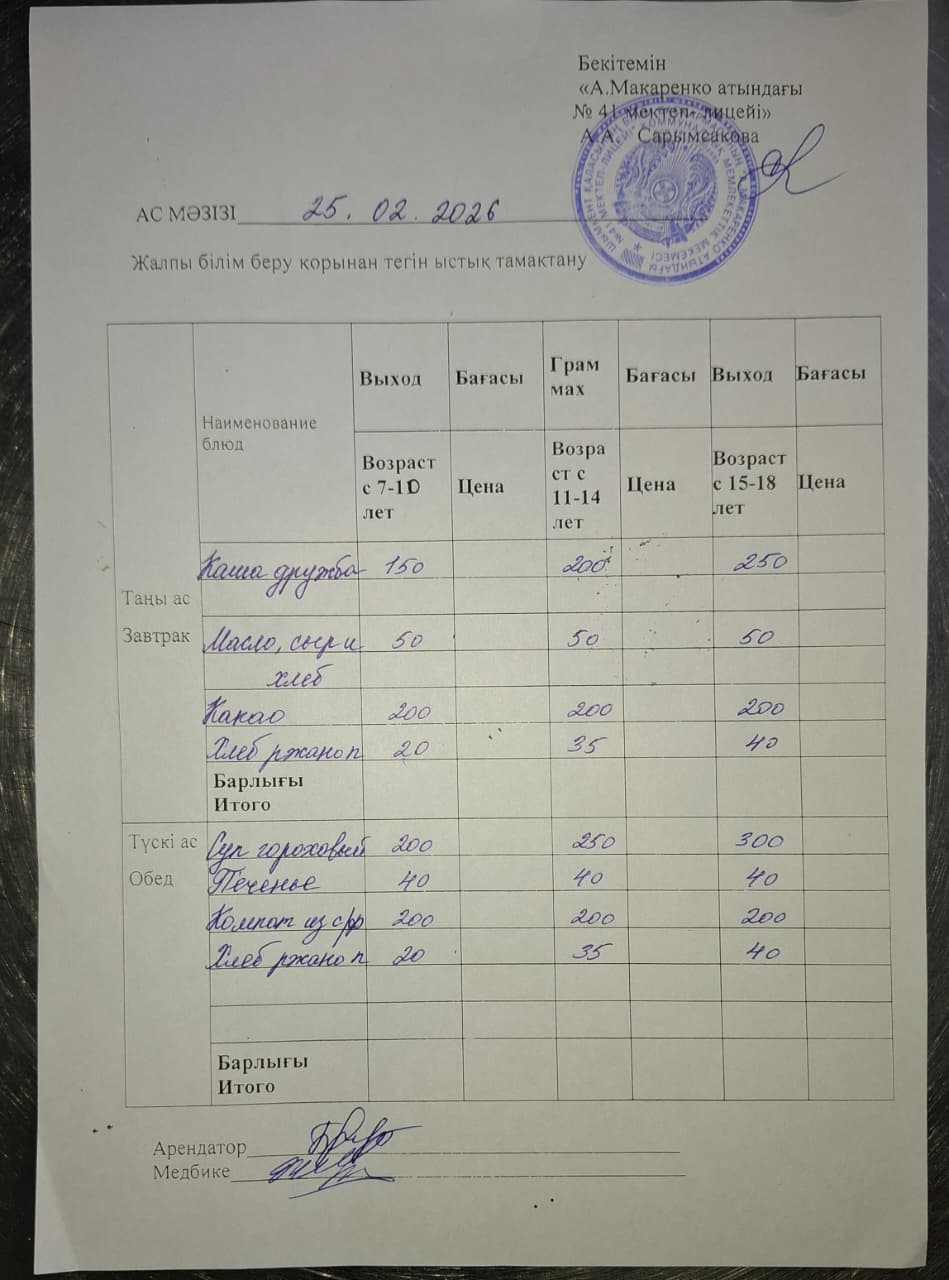 Бекітемін
«А.Макаренко атындағы
№ 41 мектеп- лицейі»
А.А. Сарымсакова
АС МӘЗІЗІ 25.02.2026
Жалпы білім беру қорынан тегін ыстық тамақтану
Наименование блюд Выход Бағасы Грам мах Бағасы Выход Бағасы
Возраст с 7-10 лет Цена Возра ст с 11-14 лет Цена Возраст с 15-18 лет Цена
Таңы ас
Завтрак
Каша дружба 150 200 250
Масло, сыр и 50 50 50
хлеб
Какао 200 200 200
Хлеб ржано п 20 35 40
Барлығы
Итого
Түскі ас
Обед
Суп гороховый 200 250 300
Печенье 40 40 40
Компот из с/ф 200 200 200
Хлеб ржано п 20 35 40
Барлығы
Итого
Арендатор
Медбике